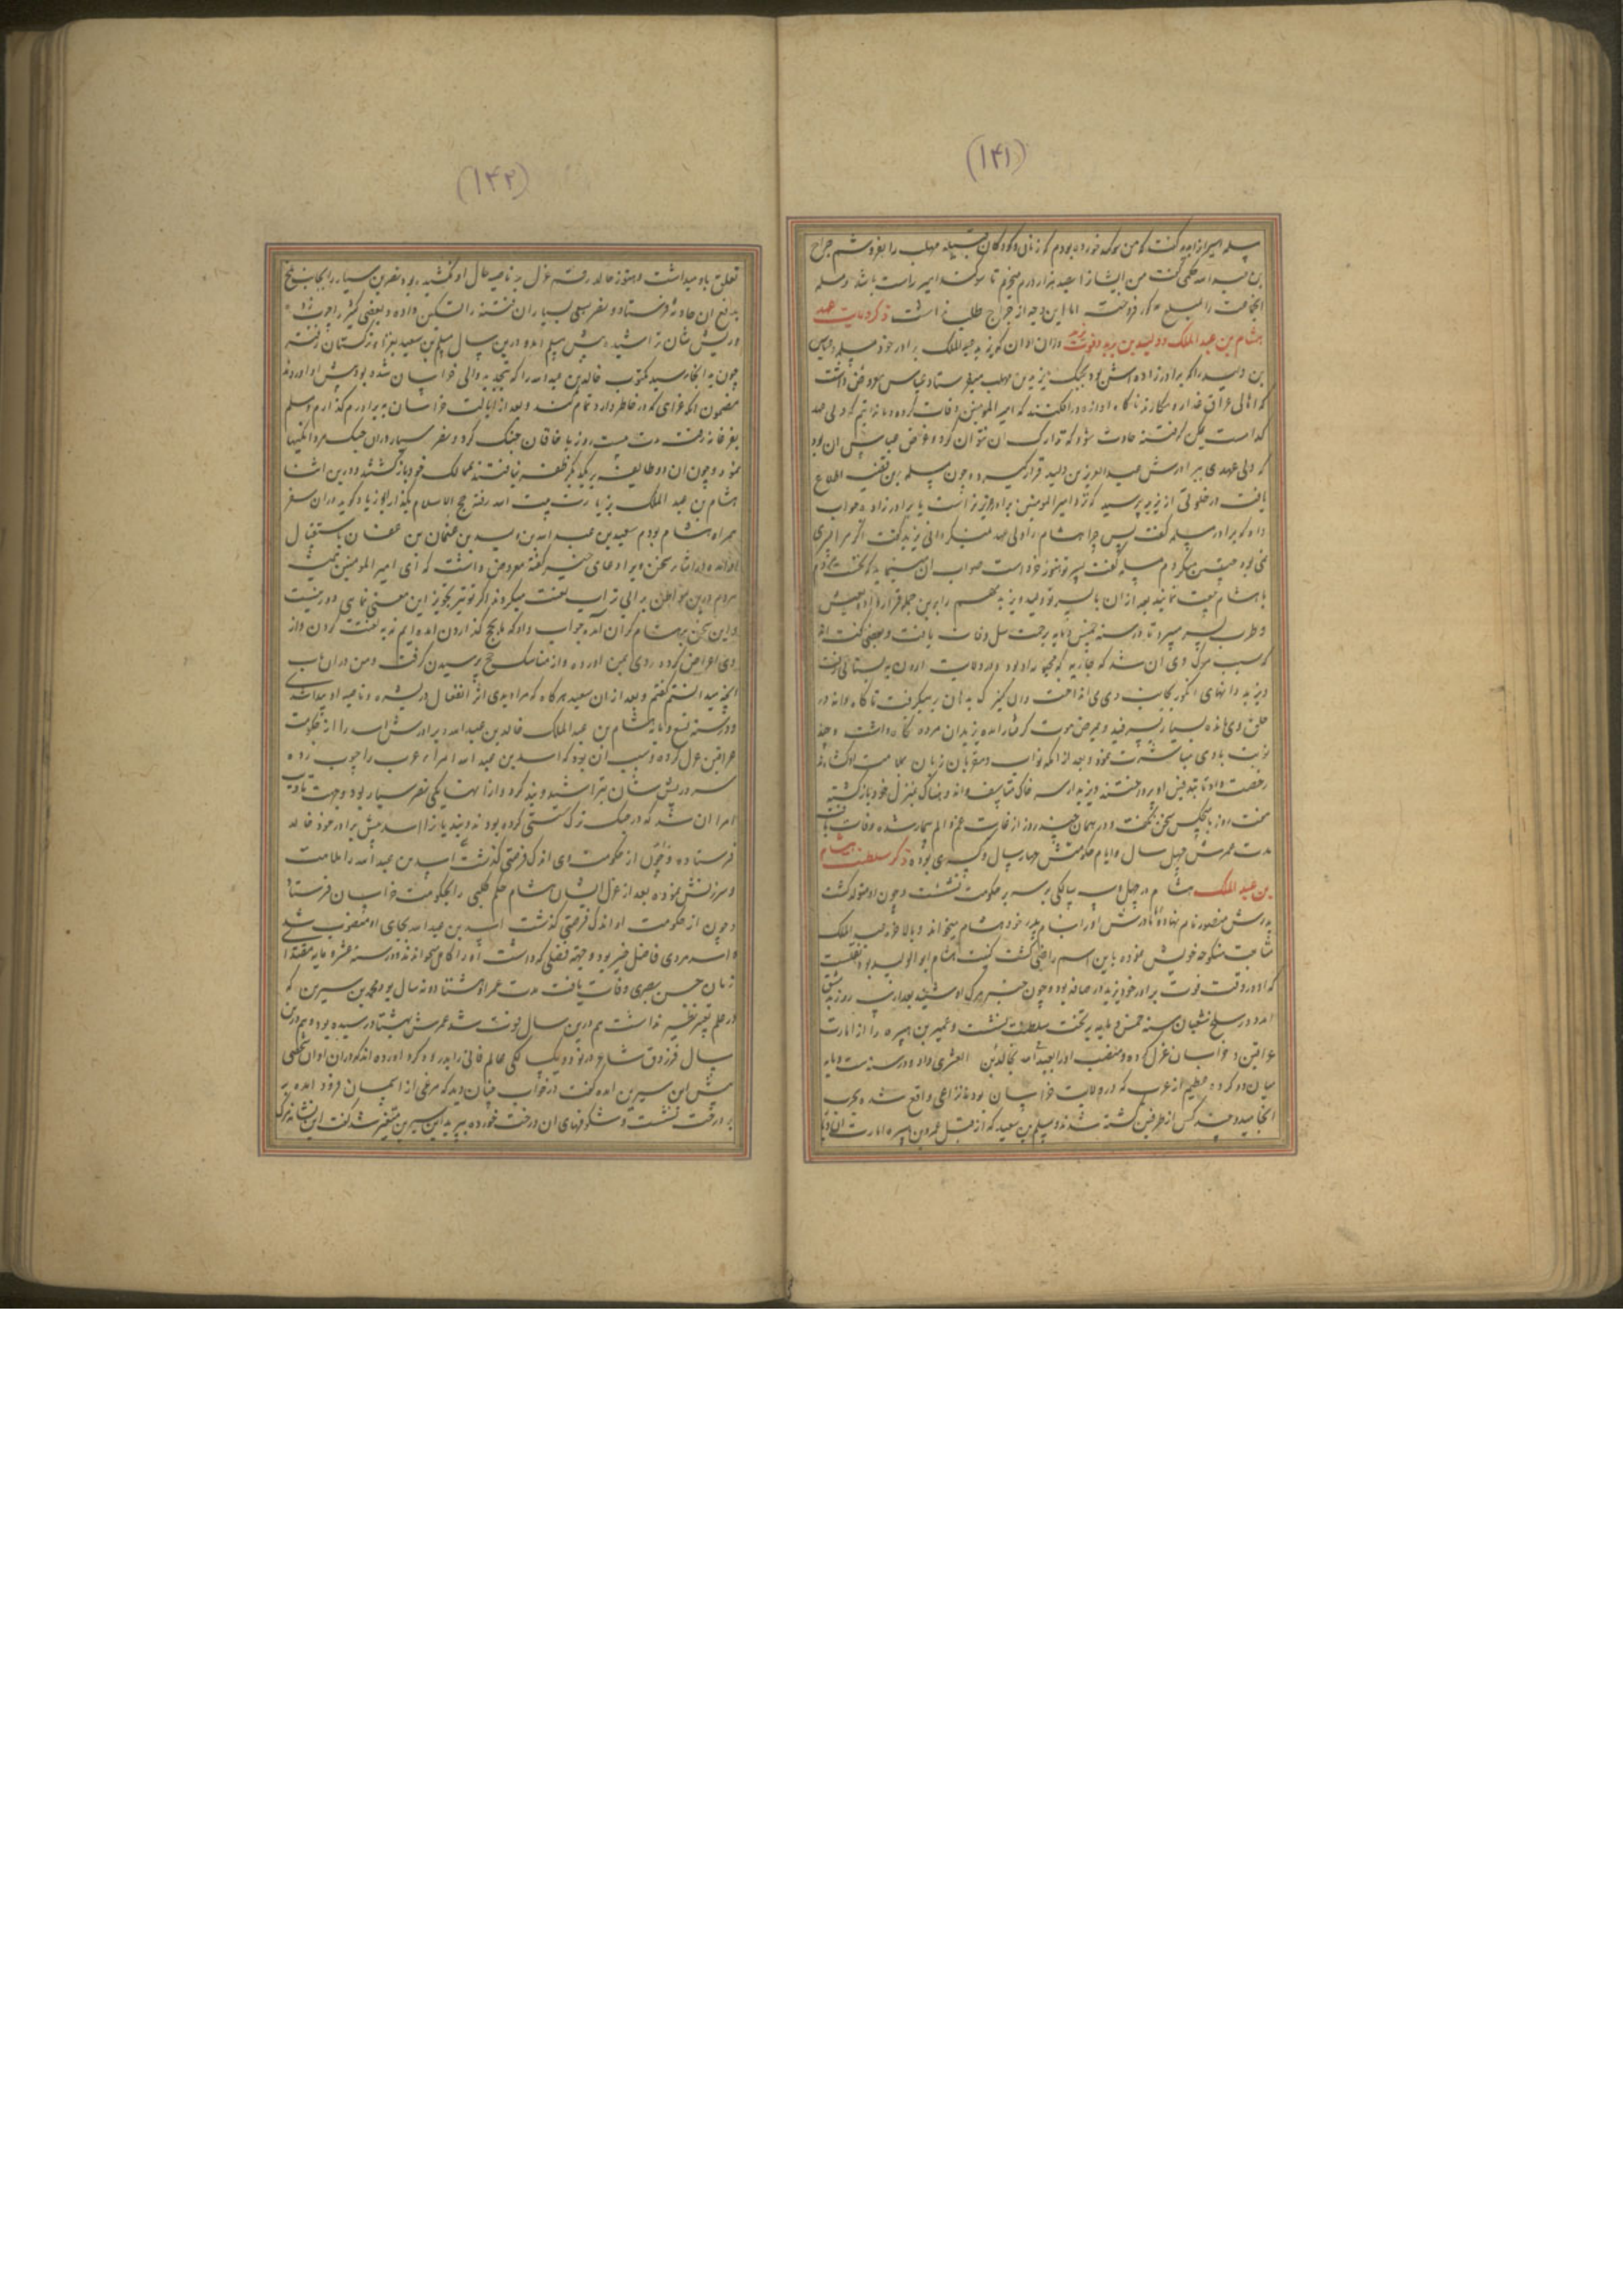 (۱۴۱)
مسلمه امیرزاده گفت که من سوگند خورده بودم که زنان و کودکان قبیله مهلب را بفروشم جراح
بن عبد الله حکمی گفت من ایشانرا بصد هزار درم میخرم تا سوگند امیر راست باشد و مسلمه
انجماعت را بمبلغ مذکور فروخت اما این وجه از جراح طلب نداشت ذکر ولایت عهد
هشام بن عبد الملک و ولید بن یزید و فوت یزید دران اوان که یزید بن عبد الملک برادر خود مسلمه و عباس
بن ولید را که برادرزاده اش بود بجنگ یزید بن مهلب میفرستاد عباس معروض داشت
که اهالی عراق غدار و مکارند ناگاه اوازه در افکنند که امیر المومنین وفات کرده و ما ندانیم که ولی عهد
کداست ممکن که فتنه حادث شود که تدارک ان نتوان کرد و غرض عباس ان بود
که ولی عهدی ببرادرش عبد العزیز بن ولید قرار گیرد و چون مسلمه برین قضیه اطلاع
یافت در خلوتی از یزید پرسید که نزد امیر المومنین برادر عزیزتر است یا برادر زاده جواب
داد که برادر مسلمه گفت پس چرا هشام را ولی عهد نمیگردانی یزید گفت اگر مرا پسری
نمی بود چنین میکردم مسلمه گفت پسر تو هنوز خرد است صواب ان مینماید که نخست مردم
با هشام بیعت نمایند بعد ازان با پسر تو ولید و یزید مهم را برین جمله قرار داده بعیش
و طرب بسر میبرد تا در سنه خمس و مایه برحمت سل وفات یافت و بعضی گفته اند
که سبب مرگ وی ان شد که جاریه که محبوبه او بود در ولایت اردن به بستانی رفت
و یزید دانهای انگور بجانب وی می انداخت و ان کنیزک بدهان میگرفت ناگاه دانه در
حلق وی مانده بسیار بسرفید و بمرض موت گرفتار امده یزید ان مرده نگاه داشت و چند
نوبت با وی مباشرت نمود و بعد از انکه نواب و مقربان زبان ملامت بر او گشادند
رخصت داد تا تجهیز او پرداختند و یزید از سر خاک متاسف و اندوهناک بمنزل خود بازگشته
هفت روز با هیچکس سخن نگفت و در همان چند روز از غایت غم و الم بیمار شده وفات یافت
مدت عمرش چهل سال و ایام حکومتش چهار سال و کسری بوده ذکر سلطنت هشام
بن عبد الملک هشام در چهل و سالگی بر سریر حکومت نشست و چون او متولد گشت
پدرش منصور نام نهاد اما مادرش او را بنام پدر خود هشام میخواند و بالاخره عبد الملک
متابعت منکوحه خویش نموده باین اسم راضی گشت کنیت هشام ابو الولید بود نقلست
که او در وقت فوت برادر خود یزید در رصافه بود و چون خبر مرگ او شنید بعد از روز بدمشق
امد و در سلخ شعبان سنه خمس و مایه بر تخت سلطنت نشست و عمر بن هبیره را از امارت
عراقین و خراسان عزل کرده و منصب او را بخالد بن عبد الله القسری داد و در سنه ست و مایه
میان دو گروه عظیم از عرب که در ولایت خراسان بودند نزاعی واقع شده بحرب
انجامید و چند کس از طرفین کشته شدند و مسلم بن سعید که از قبل عمر بن هبیره امارت ان دیار
(۱۴۲)
تعلق باو میداشت و هنوز خالد رقم عزل بر ناصیه حال او نکشیده بود نصر بن سیار را بجانب بلخ
بدفع ان حادثه فرستاد و نصر بسعی بسیار ان فتنه را تسکین داده و بعضی کثیر را چوب زد
و ریش شان تراشیده پیش مسلم امده و درین سال مسلم بن سعید بغزاء ترکستان رفته
چون به انجا رسید مکتوب خالد بن عبد الله را که بتجدید والی خراسان شده بود پیش او اوردند
مضمون انکه غزای که در خاطر دارد تمام کند و بعد از ایالت خراسان به برادرم گذارم و مسلم
بفرغانه رفت مدت بیست روز با خاقان جنگ کرد و نصر سیار دران جنگ مردانگیها
نمود و چون ان دو طایفه بر یکدیگر ظفر نیافتند بممالک خود بازگشتند و درین اثنا
هشام بن عبد الملک بزیارت بیت الله رفته حج الاسلام بگذارد ابو الزناد گوید دران سفر
همراه هشام بودم سعید بن عبد الله بن ولید بن عثمان بن عفان باستقبال
امده در اثناء سخن ویرا دعای خیر گفته معروض داشت که ای امیر المومنین همیشه
مردم درین مواطن بر ابی تراب لعنت میکردند اگر تو نیز تجویز این معنی نمایی دور نیست
و این سخن بر هشام گران آمده جواب داد که ما بحج گذاردن امده ایم نه به لعنت کردن و از
وی اعراض کرده روی بمن اورده و از مناسک حج پرسیدن گرفت و من دران باب
انچه میدانستم گفتم و بعد ازان سعید هرگاه که مرا دیدی اثر انفعال در بشره و ناصیه او پیدا شدی
و در سنه تسع و مایه هشام بن عبد الملک خالد بن عبد الله و برادرش اسد را از حکومت
عراقین عزل کرده و سبب ان بود که اسد بن عبد الله امراء عرب را چوب زده
سر و ریش شان بتراشید و بند کرد و از انها یکی نصر سیار بود و جهت تادیب
امرا ان شد که در جنگ ترک سستی کرده بودند و بندیان را اسد پیش برادر خود خالد
فرستاده و چون از حکومت وی اندک فرصتی گذشت اسد بن عبد الله را ملامت
و سرزنش نموده بعد از عزل ایشان هشام حکم کلبی را بحکومت خراسان فرستاد
و چون از حکومت او اندک فرصتی گذشت اسد بن عبد الله بجای او منصوب شد
و اسد مردی فاضل خیر بود و جهة فضلی که داشت او را کامل میخواندند و در سنه عشر و مایه مقتدا
زمان حسن بصری وفات یافت مدت عمر او هشتاد و نه سال بود و محمد بن سیرین که
در علم تعبیر نظیر نداشت هم درین سال فوت شد عمرش بهشتاد رسیده بود و هم درین
سال فرزدق شاعر در نود و یک سالگی عالم فانی را بدرود کرد اورده اند که دران اوان شخصی
پیش ابن سیرین امده گفت در خواب چنان دیدم که مرغی از اسمان فرود امده
بر درخت نشست و شکوفهای ان درخت خورده بپرید ابن سیرین متغیر شد گفت این نشانه مرگ